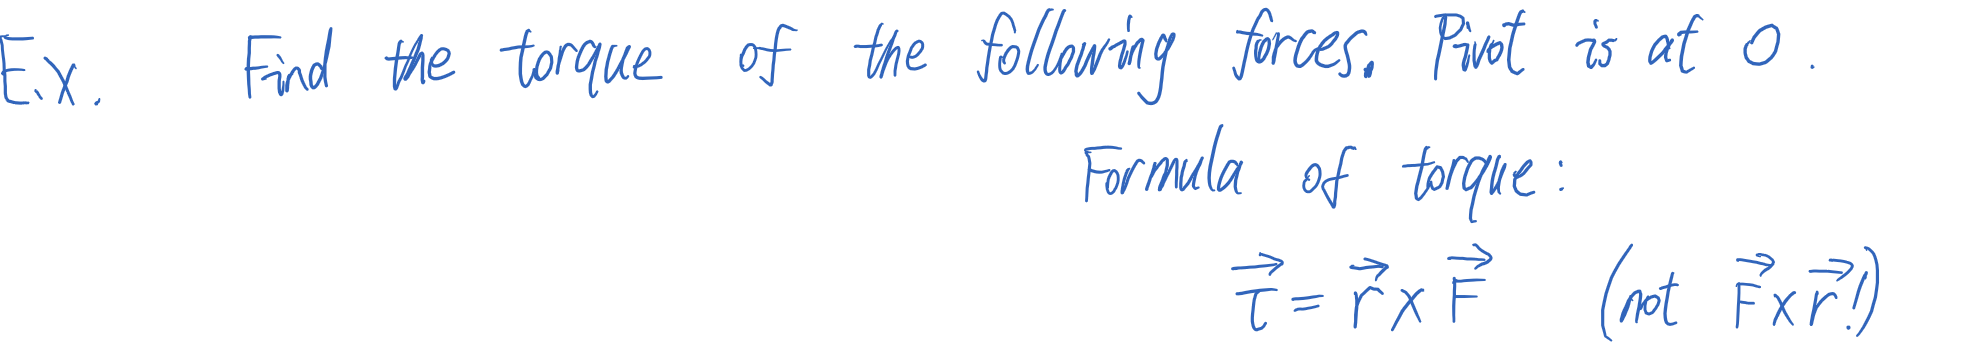 Ex. Find the torque of the following forces. Pivot is at O.
Formula of torque:
$\vec{\tau} = \vec{r} \times \vec{F}$ (not $\vec{F} \times \vec{r}$!)